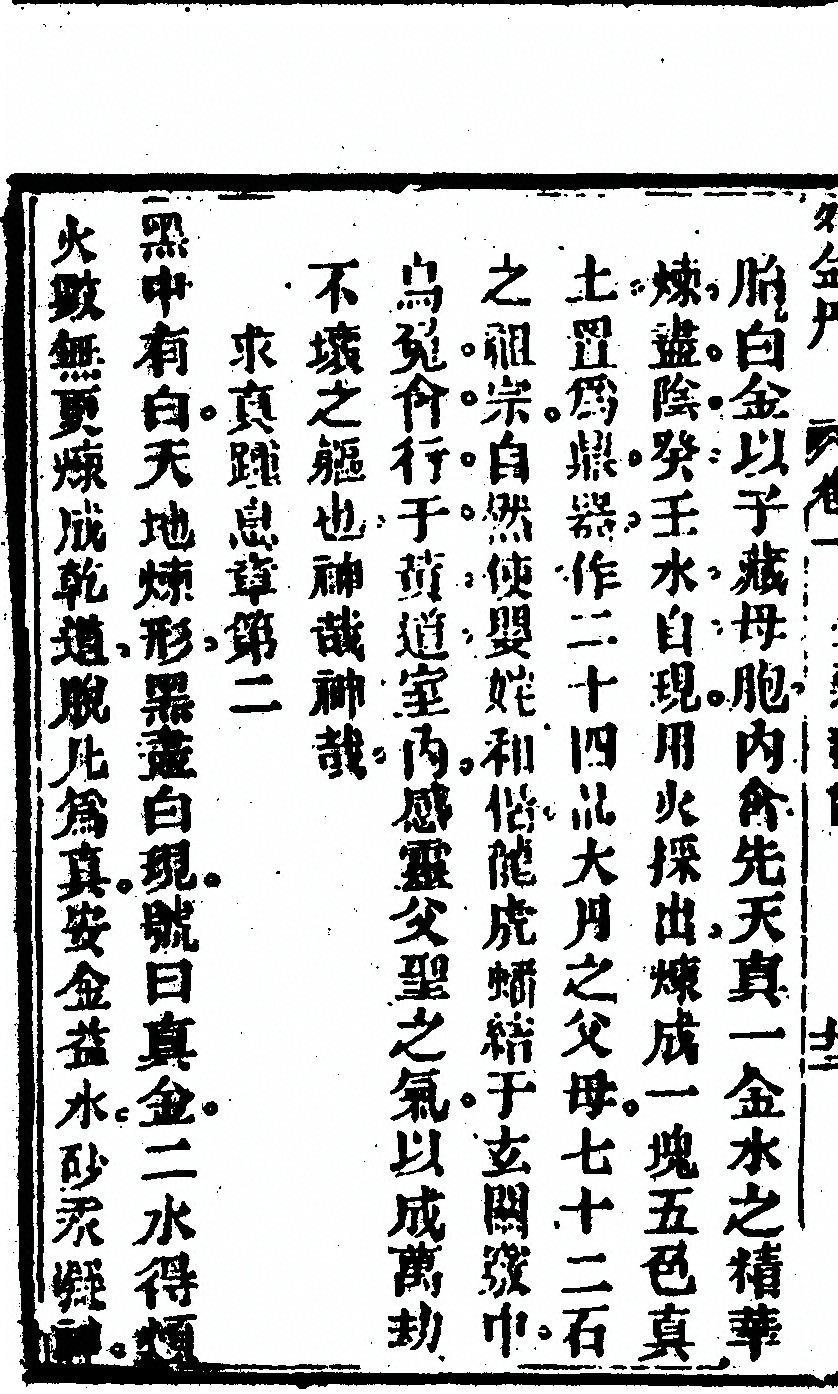 胎白金以子藏母胞內含先天真一金水之精華
煉盡陰癸壬水自現用火採出煉成一塊五色真
土置爲鼎器作二十四品大丹之父母七十二石
之祖宗自然使嬰姹和偕龍虎蟠結于玄關竅中
烏兔會行于黃道室內感靈父聖之氣以成萬劫
不壞之軀也神哉神哉
求真踵息章第二
黑中有白天地煉形黑盡白現號曰真金二水得
火數無更煉成乾道脫此爲真安金益水砂汞凝神